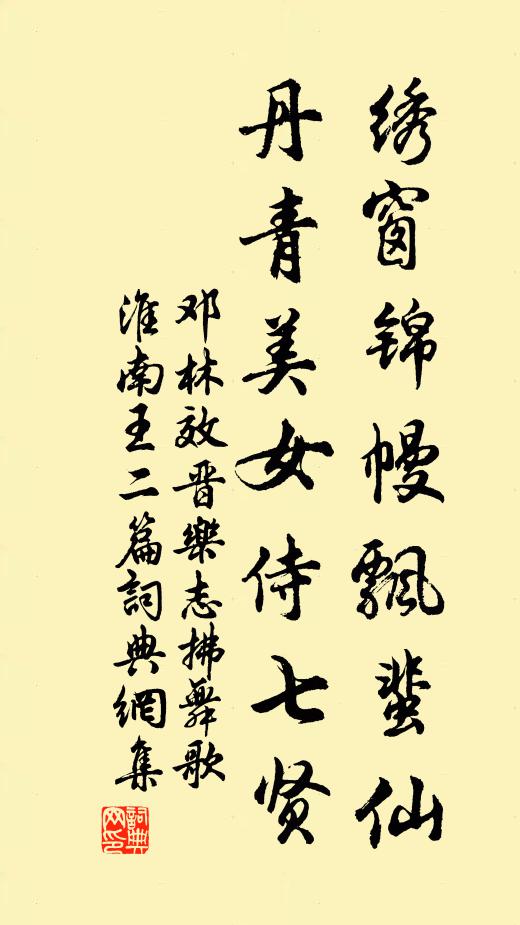 绣窗锦幔飘蜚仙
丹青美女侍七贤
邓林效晋樂志拂舞歌
淮南王二篇詞典網集
詞典网印